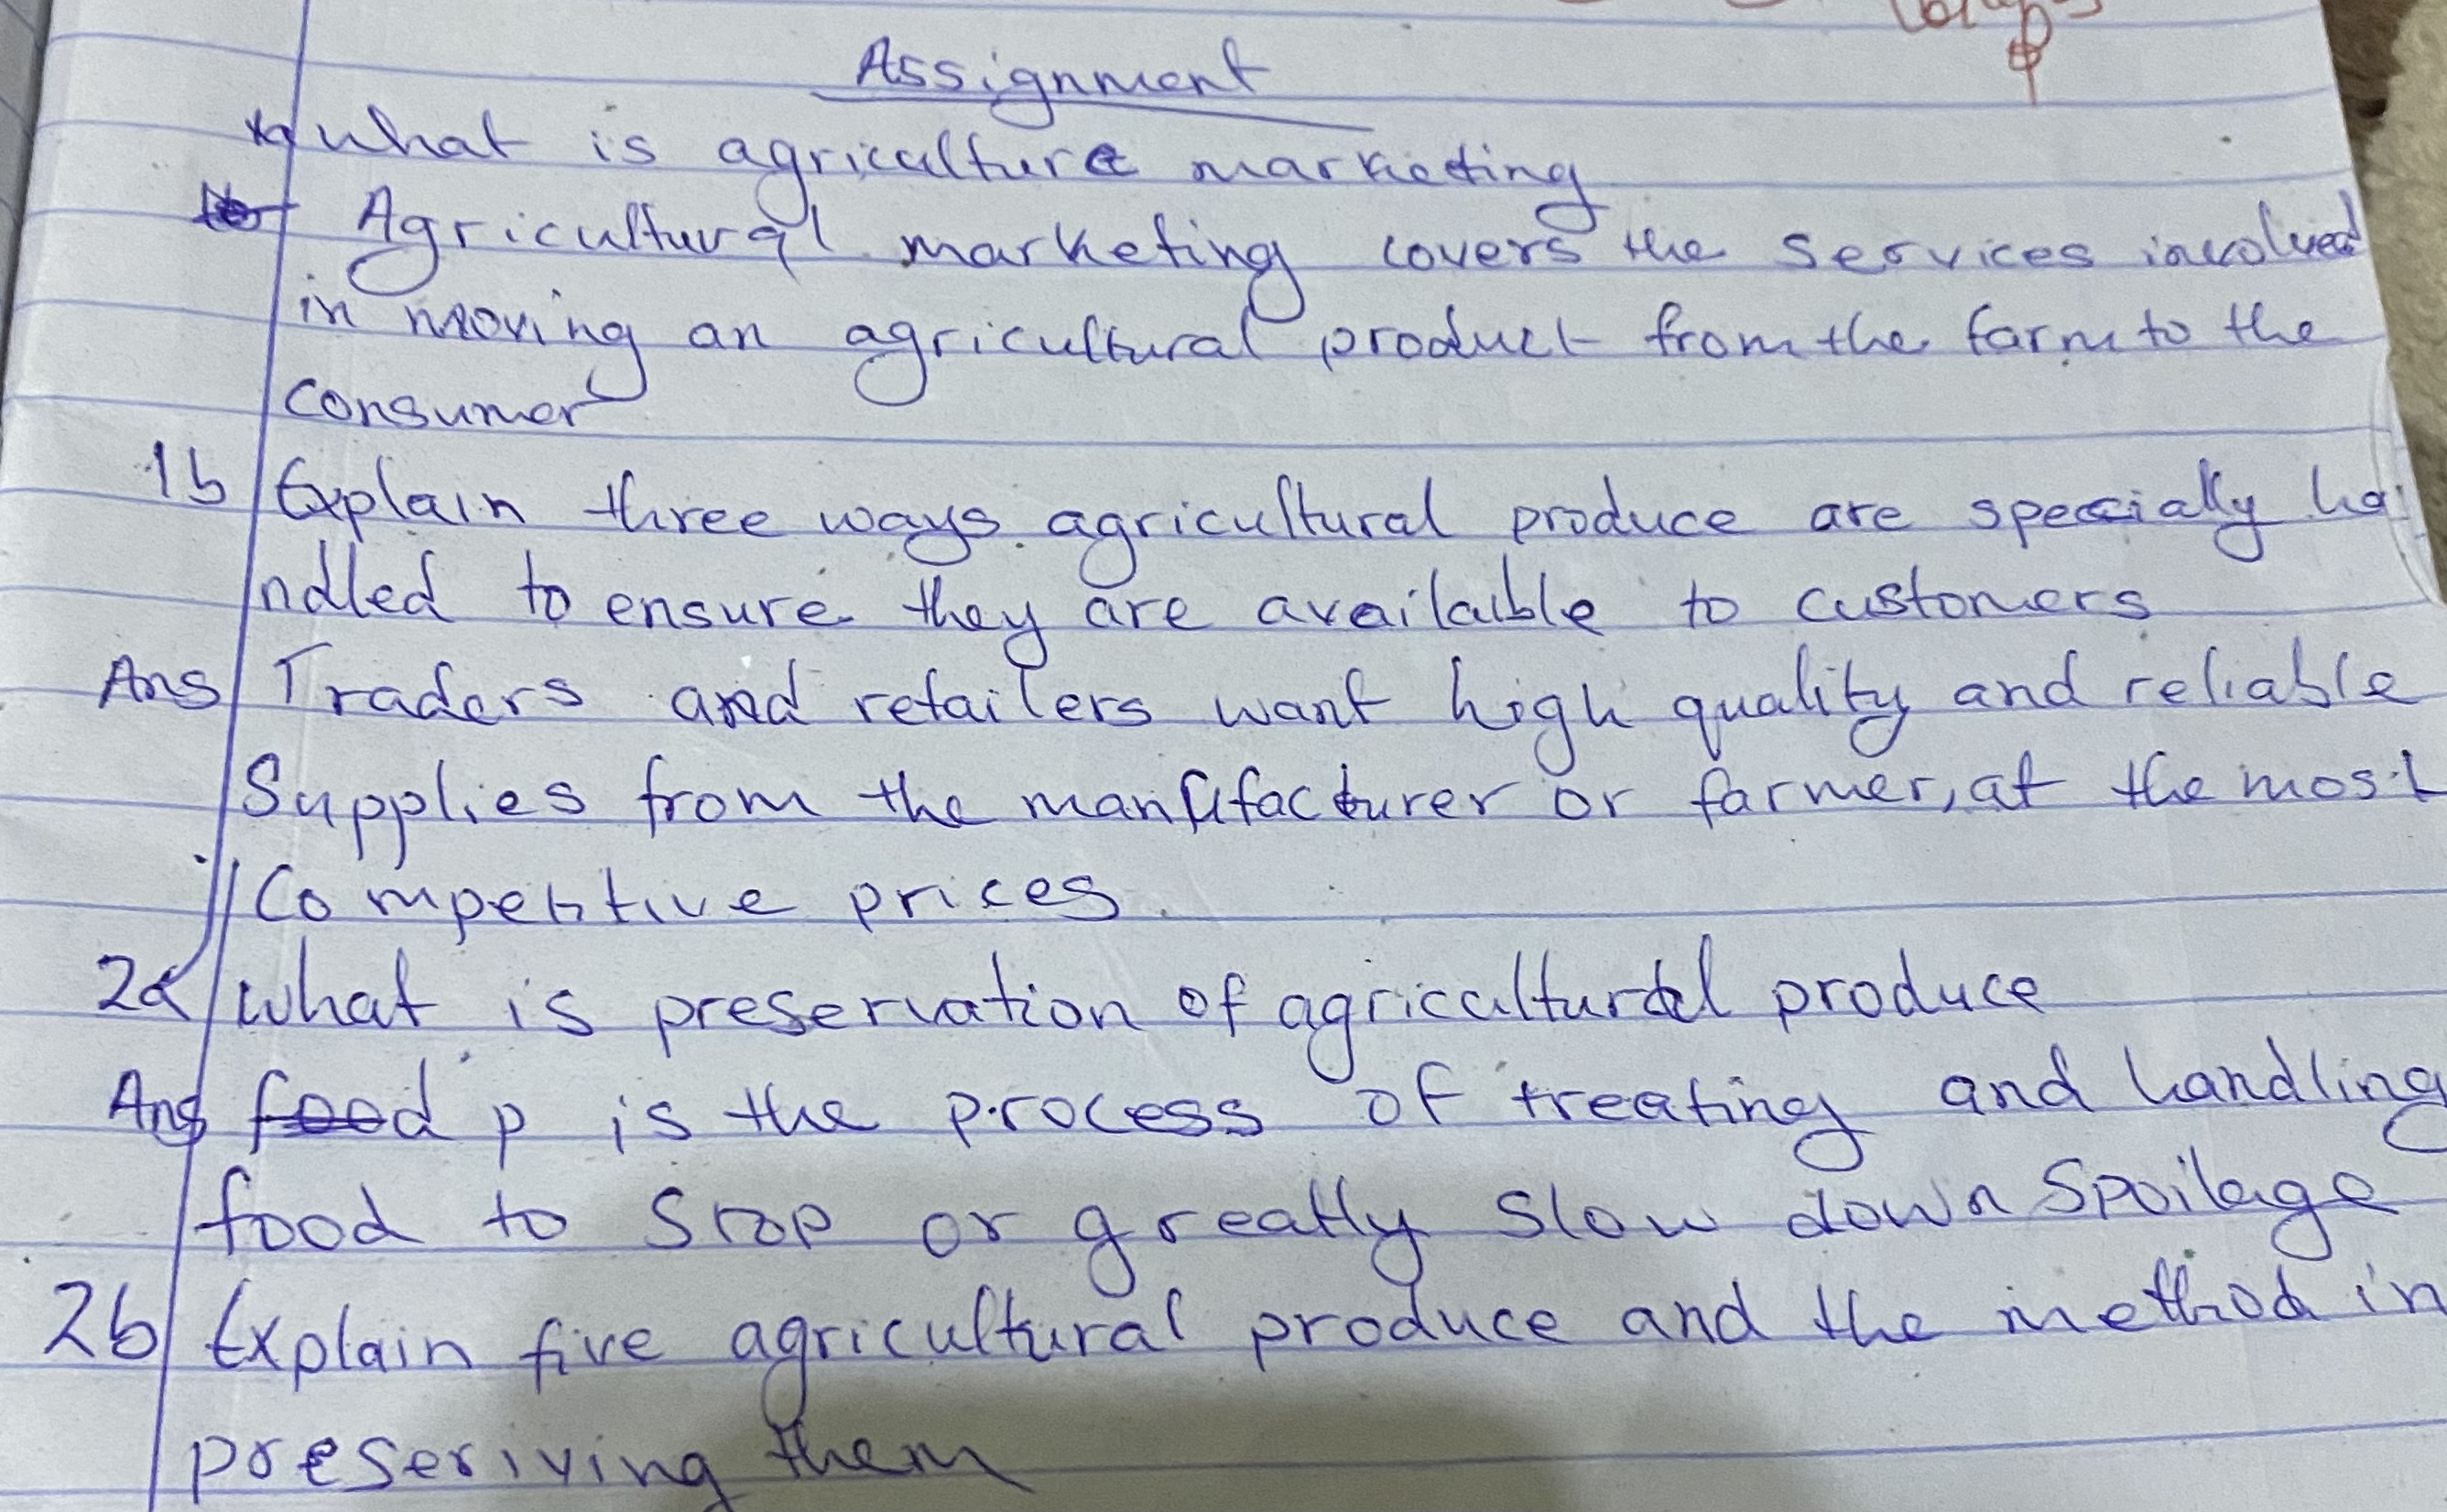 Assignment
1a what is agriculture marketing
Agricultural marketing covers the services involved
in moving an agricultural product from the farm to the
consumer
1b Explain three ways agricultural produce are specially ha
ndled to ensure they are available to customers
Ans Traders and retailers want high quality and reliable
Supplies from the manufacturer or farmer, at the most
Competitive prices.
2a what is preservation of agricultural produce
Ans food p is the process of treating and handling
food to stop or greatly slow down spoilage
2b Explain five agricultural produce and the method in
preseriving them